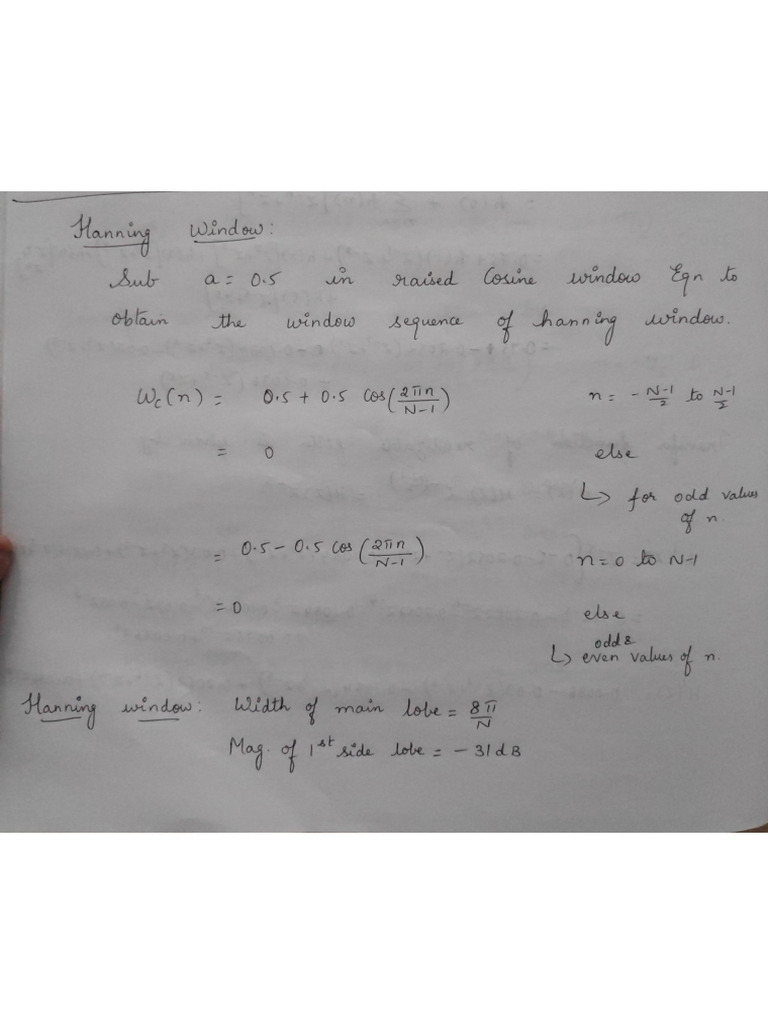 Hanning Window:
Sub a = 0.5 in raised Cosine window Eqn to
obtain the window sequence of hanning window.
Wc(n) = 0.5 + 0.5 cos(2πn/N-1) n = - N-1/2 to N-1/2
= 0 else
↳ for odd values
of n.
= 0.5 - 0.5 cos(2πn/N-1) n = 0 to N-1
= 0 else
odd &
↳ even values of n.
Hanning window: Width of main lobe = 8π/N
Mag. of 1st side lobe = - 31 dB